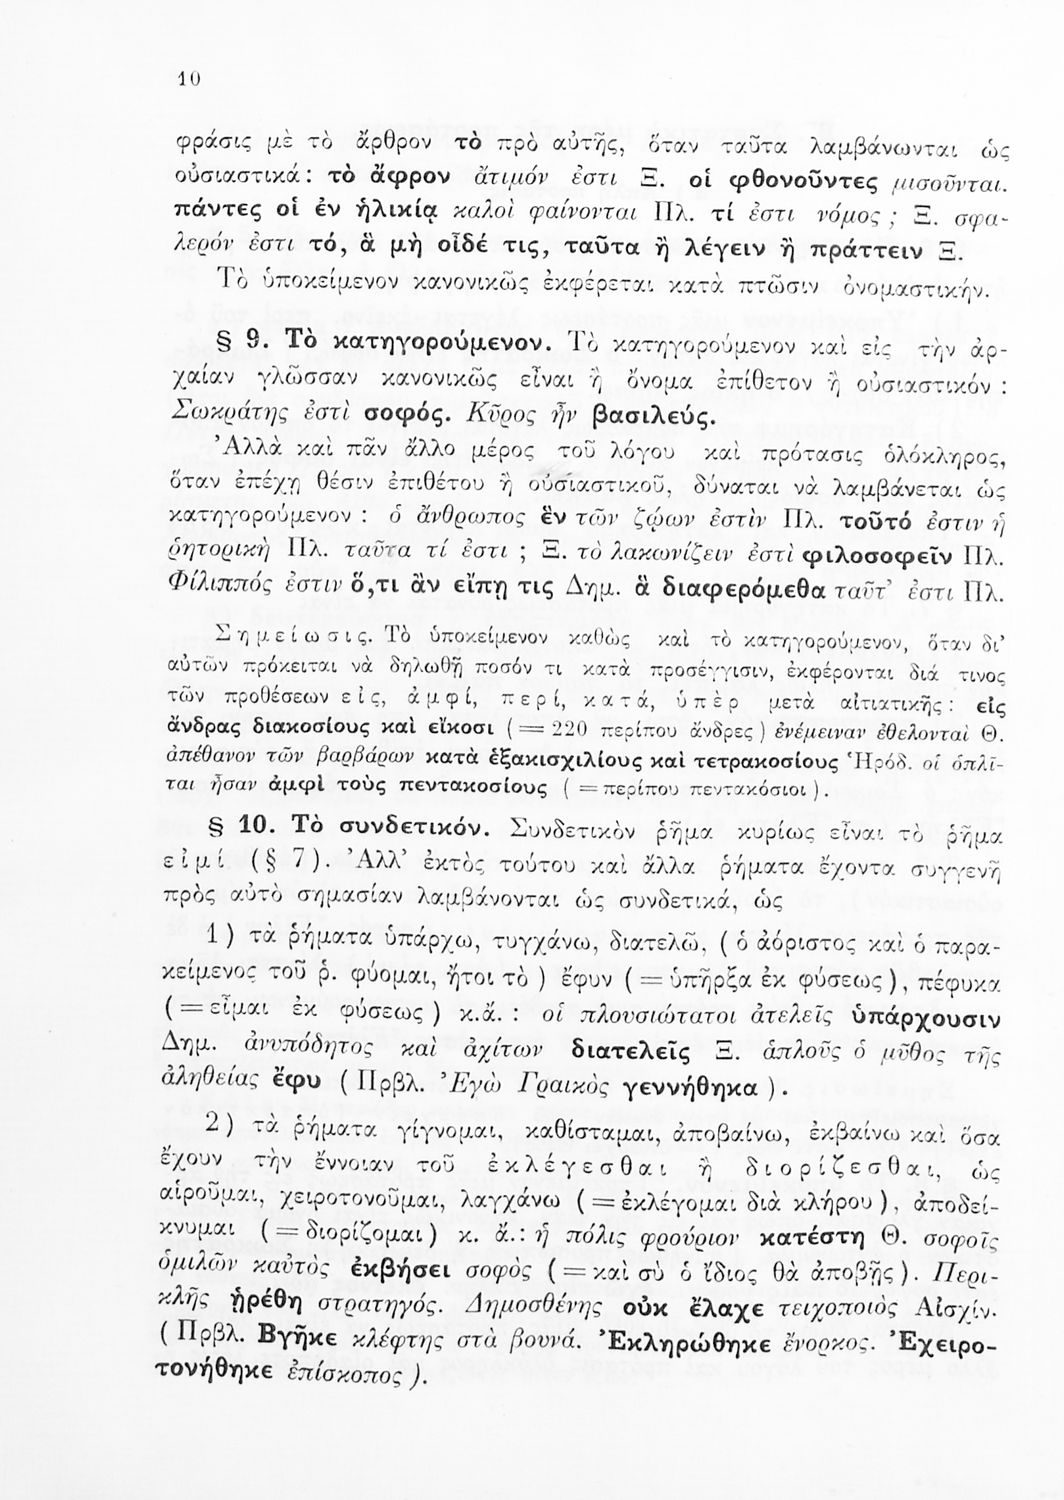 10
φράσις μὲ τὸ ἄρθρον τὸ πρὸ αὐτῆς, ὅταν ταῦτα λαμβάνωνται ὡς
οὐσιαστικά: τὸ ἄφρον ἄτιμόν ἐστι Ξ. οἱ φθονοῦντες μισοῦνται.
πάντες οἱ ἐν ἡλικίᾳ καλοὶ φαίνονται Πλ. τί ἐστι νόμος ; Ξ. σφα-
λερόν ἐστι τό, ἃ μὴ οἶδέ τις, ταῦτα ἢ λέγειν ἢ πράττειν Ξ.
Τὸ ὑποκείμενον κανονικῶς ἐκφέρεται κατὰ πτῶσιν ὀνομαστικήν.
§ 9. Τὸ κατηγορούμενον. Τὸ κατηγορούμενον καὶ εἰς τὴν ἀρ-
χαίαν γλῶσσαν κανονικῶς εἶναι ἢ ὄνομα ἐπίθετον ἢ οὐσιαστικόν :
Σωκράτης ἐστὶ σοφός. Κῦρος ἦν βασιλεύς.
Ἀλλὰ καὶ πᾶν ἄλλο μέρος τοῦ λόγου καὶ πρότασις ὁλόκληρος,
ὅταν ἐπέχῃ θέσιν ἐπιθέτου ἢ οὐσιαστικοῦ, δύναται νὰ λαμβάνεται ὡς
κατηγορούμενον : ὁ ἄνθρωπος ἓν τῶν ζῴων ἐστὶν Πλ. τοῦτό ἐστιν ἡ
ῥητορικὴ Πλ. ταῦτα τί ἐστι ; Ξ. τὸ λακωνίζειν ἐστὶ φιλοσοφεῖν Πλ.
Φίλιππός ἐστιν ὅ,τι ἂν εἴπῃ τις Δημ. ἃ διαφερόμεθα ταῦτ’ ἐστι Πλ.
Σημείωσις. Τὸ ὑποκείμενον καθὼς καὶ τὸ κατηγορούμενον, ὅταν δι’
αὐτῶν πρόκειται νὰ δηλωθῇ ποσόν τι κατὰ προσέγγισιν, ἐκφέρονται διά τινος
τῶν προθέσεων εἰς, ἀμφί, περί, κατά, ὑπὲρ μετὰ αἰτιατικῆς : εἰς
ἄνδρας διακοσίους καὶ εἴκοσι (= 220 περίπου ἄνδρες) ἐνέμειναν ἐθελονταὶ Θ.
ἀπέθανον τῶν βαρβάρων κατὰ ἑξακισχιλίους καὶ τετρακοσίους Ἡρόδ. οἱ ὁπλῖ-
ται ἦσαν ἀμφὶ τοὺς πεντακοσίους ( = περίπου πεντακόσιοι ).
§ 10. Τὸ συνδετικόν. Συνδετικὸν ῥῆμα κυρίως εἶναι τὸ ῥῆμα
εἰμί (§ 7). Ἀλλ’ ἐκτὸς τούτου καὶ ἄλλα ῥήματα ἔχοντα συγγενῆ
πρὸς αὐτὸ σημασίαν λαμβάνονται ὡς συνδετικά, ὡς
1) τὰ ῥήματα ὑπάρχω, τυγχάνω, διατελῶ, ( ὁ ἀόριστος καὶ ὁ παρα-
κείμενος τοῦ ῥ. φύομαι, ἤτοι τὸ ) ἔφυν ( = ὑπῆρξα ἐκ φύσεως ), πέφυκα
( = εἶμαι ἐκ φύσεως ) κ.ἄ. : οἱ πλουσιώτατοι ἀτελεῖς ὑπάρχουσιν
Δημ. ἀνυπόδητος καὶ ἀχίτων διατελεῖς Ξ. ἁπλοῦς ὁ μῦθος τῆς
ἀληθείας ἔφυ ( Πρβλ. Ἐγὼ Γραικὸς γεννήθηκα ).
2) τὰ ῥήματα γίγνομαι, καθίσταμαι, ἀποβαίνω, ἐκβαίνω καὶ ὅσα
ἔχουν τὴν ἔννοιαν τοῦ ἐκλέγεσθαι ἢ διορίζεσθαι, ὡς
αἱροῦμαι, χειροτονοῦμαι, λαγχάνω ( = ἐκλέγομαι διὰ κλήρου ), ἀποδεί-
κνυμαι ( = διορίζομαι ) κ. ἄ.: ἡ πόλις φρούριον κατέστη Θ. σοφοῖς
ὁμιλῶν καὐτὸς ἐκβήσει σοφὸς ( = καὶ σὺ ὁ ἴδιος θὰ ἀποβῇς ). Περι-
κλῆς ᾑρέθη στρατηγός. Δημοσθένης οὐκ ἔλαχε τειχοποιὸς Αἰσχίν.
( Πρβλ. Βγῆκε κλέφτης στὰ βουνά. Ἐκληρώθηκε ἔνορκος. Ἐχειρο-
τονήθηκε ἐπίσκοπος ).